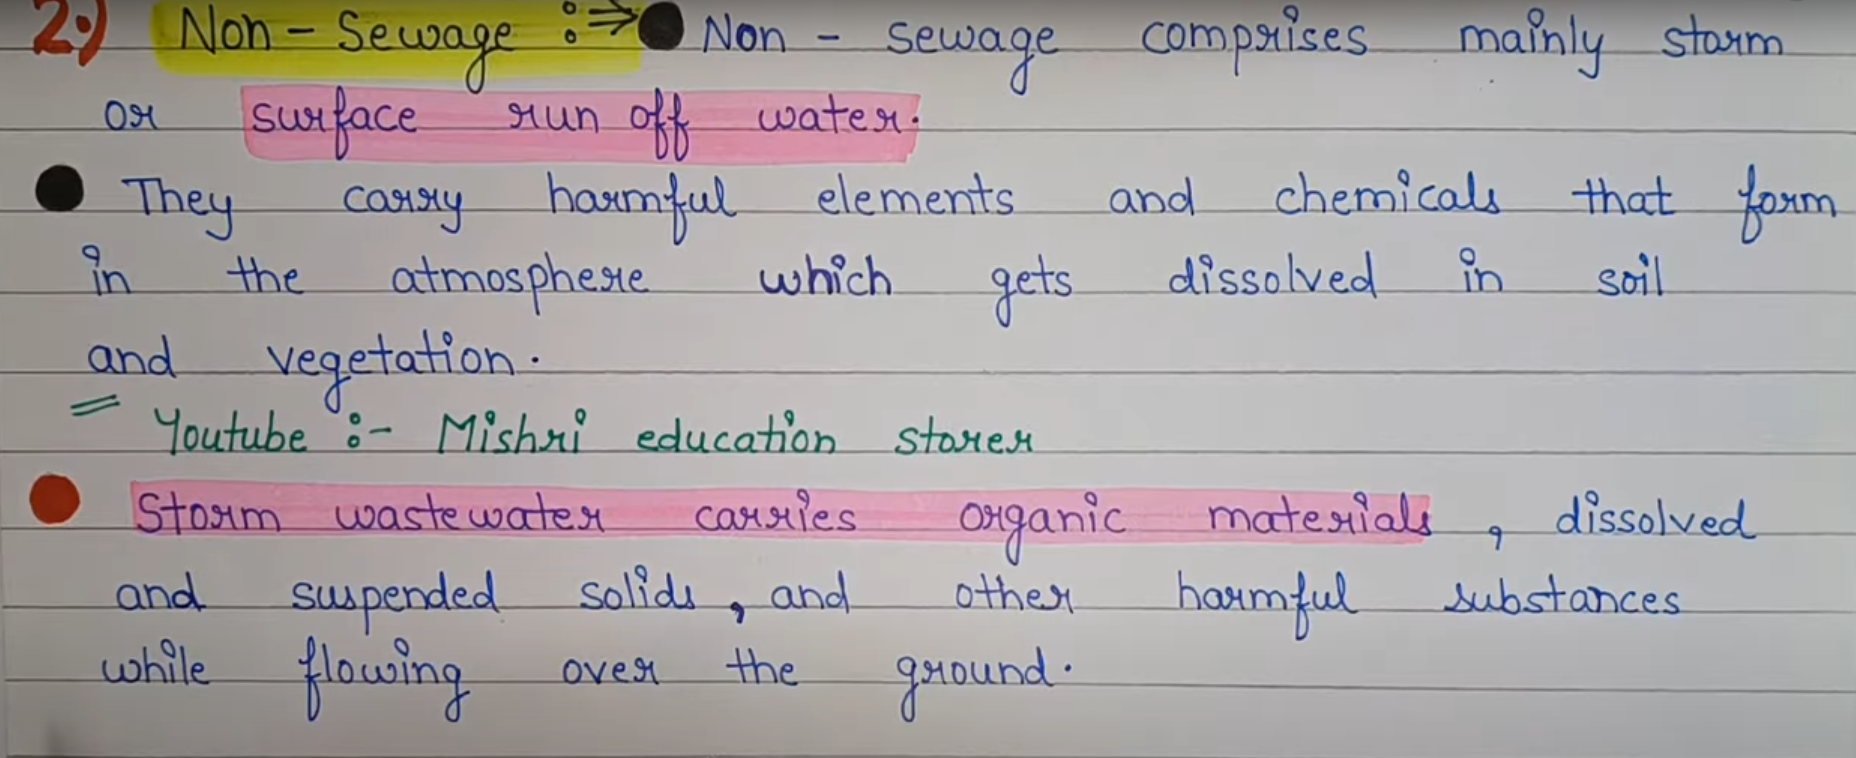 2:) Non - Sewage :⇒ ● Non - sewage comprises mainly storm
or surface run off water.
● They carry harmful elements and chemicals that form
in the atmosphere which gets dissolved in soil
and vegetation.
= Youtube :- Mishri education storer
● Storm wastewater carries organic materials, dissolved
and suspended solids, and other harmful substances
while flowing over the ground.